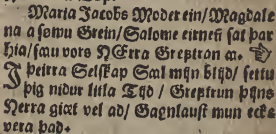 Maria Jacobs Moder ein/ Magdale
na a somu Grein/ Salome eirnen sat par
hia/ sau vors HErra Grestran æ. ☞
J þeirra Selskap Sæl mijn blijd/ settu
þig nidur litla Tijd / Grestrun þijns
Herra giæt vel ad/ Gagnlaust mun ecke
vera þad.